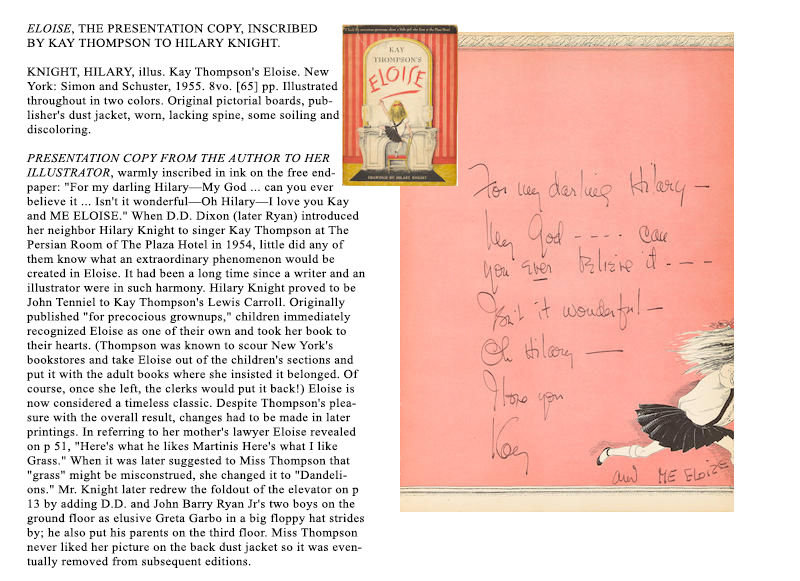 ELOISE, THE PRESENTATION COPY, INSCRIBED
BY KAY THOMPSON TO HILARY KNIGHT.
KNIGHT, HILARY, illus. Kay Thompson's Eloise. New
York: Simon and Schuster, 1955. 8vo. [65] pp. Illustrated
throughout in two colors. Original pictorial boards, pub-
lisher's dust jacket, worn, lacking spine, some soiling and
discoloring.
PRESENTATION COPY FROM THE AUTHOR TO HER
ILLUSTRATOR, warmly inscribed in ink on the free end-
paper: "For my darling Hilary—My God ... can you ever
believe it ... Isn't it wonderful—Oh Hilary—I love you Kay
and ME ELOISE." When D.D. Dixon (later Ryan) introduced
her neighbor Hilary Knight to singer Kay Thompson at The
Persian Room of The Plaza Hotel in 1954, little did any of
them know what an extraordinary phenomenon would be
created in Eloise. It had been a long time since a writer and an
illustrator were in such harmony. Hilary Knight proved to be
John Tenniel to Kay Thompson's Lewis Carroll. Originally
published "for precocious grownups," children immediately
recognized Eloise as one of their own and took her book to
their hearts. (Thompson was known to scour New York's
bookstores and take Eloise out of the children's sections and
put it with the adult books where she insisted it belonged. Of
course, once she left, the clerks would put it back!) Eloise is
now considered a timeless classic. Despite Thompson's plea-
sure with the overall result, changes had to be made in later
printings. In referring to her mother's lawyer Eloise revealed
on p 51, "Here's what he likes Martinis Here's what I like
Grass." When it was later suggested to Miss Thompson that
"grass" might be misconstrued, she changed it to "Dandeli-
ons." Mr. Knight later redrew the foldout of the elevator on p
13 by adding D.D. and John Barry Ryan Jr's two boys on the
ground floor as elusive Greta Garbo in a big floppy hat strides
by; he also put his parents on the third floor. Miss Thompson
never liked her picture on the back dust jacket so it was even-
tually removed from subsequent editions.
KAY
THOMPSON'S
ELOISE
DRAWINGS BY HILARY KNIGHT
For my darling Hilary —
My God ---- can
you ever believe it ---
Isn't it wonderful —
Oh Hilary —
I love you
Kay
and ME ELOISE